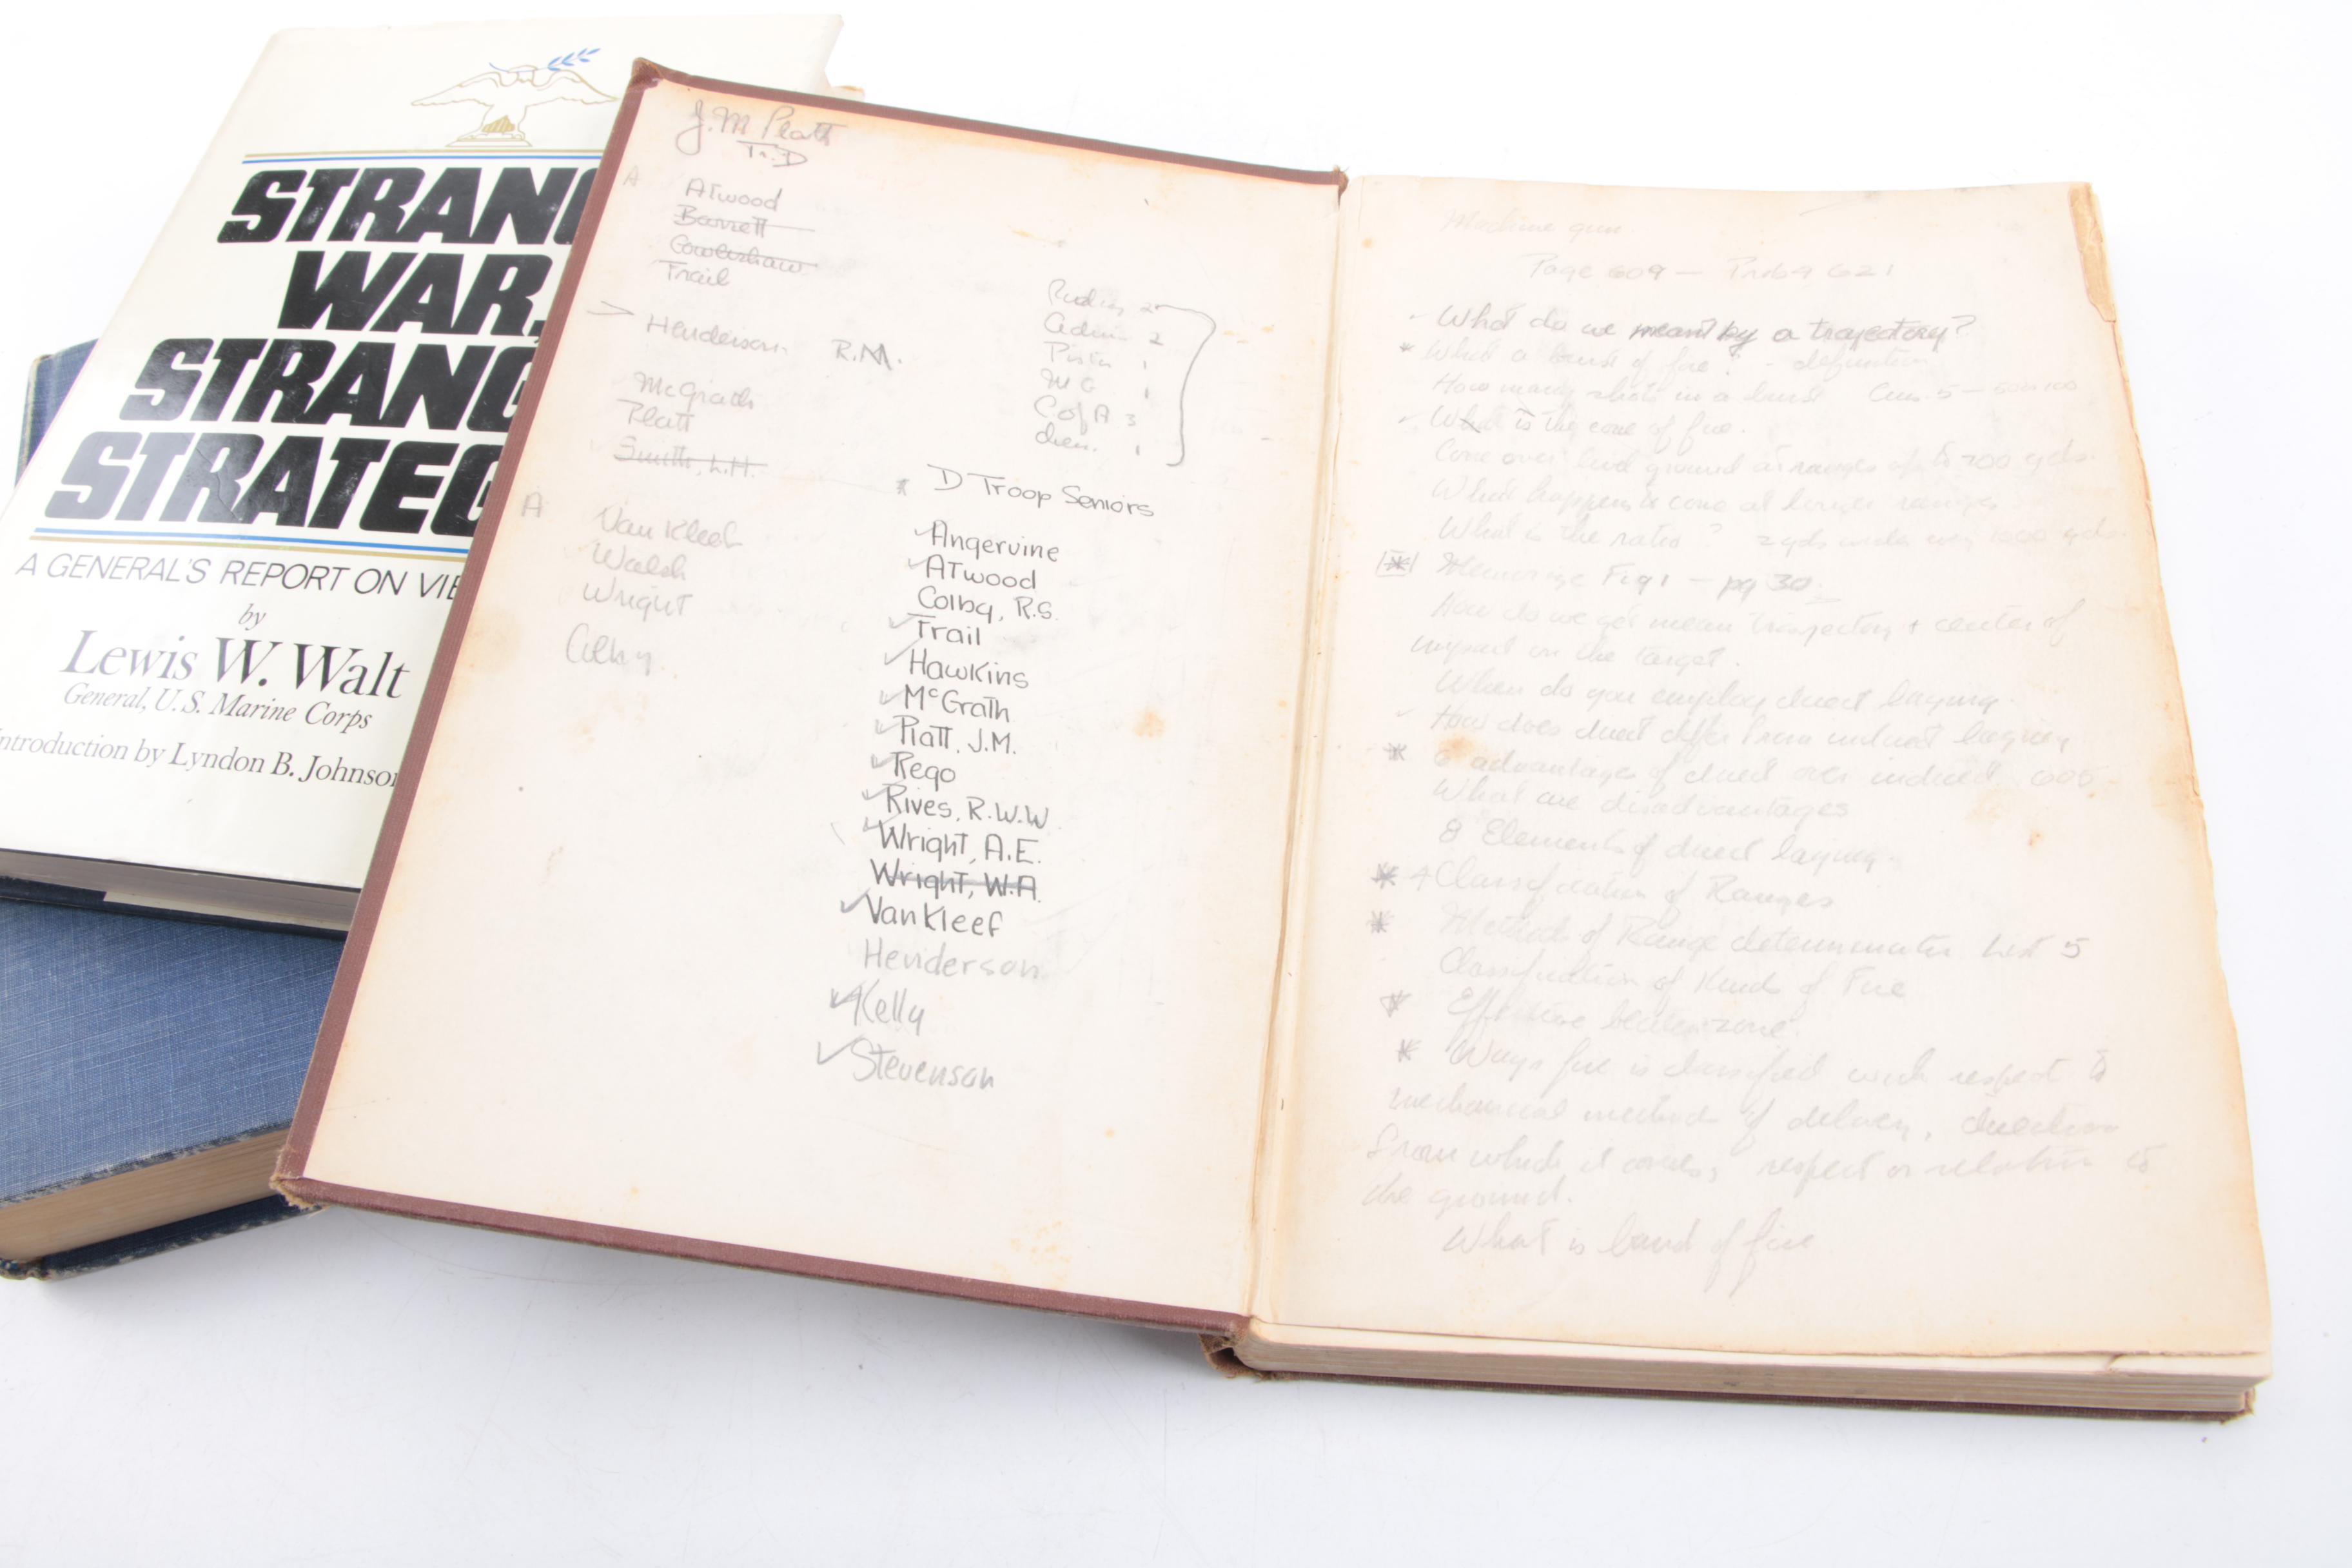 STRANG
WAR,
STRANG
STRATEG
A GENERAL'S REPORT ON VIE
by
Lewis W. Walt
General, U.S. Marine Corps
ntroduction by Lyndon B. Johnson
J. M Platt
Tr. D
A Atwood
Barrett
Cowlishaw
Trail
> Henderson R.M.
McGrath
Platt
Smith, L.H.
A Van Kleef
Walsh
Wright
Colby
2
Admin 2
Pistol 1
MG 1
C of A 3
chem. 1
* D Troop Seniors
Angervine
Atwood
Colby, R.S.
Trail
Hawkins
McGrath
Platt, J.M.
Rego
Rives, R.W.W
Wright, A.E.
Wright, W.A.
Van Kleef
Henderson
Kelly
Stevenson
Machine gun.
Page 609 — Prob 9 621
What do we meant by a trajectory?
* What a burst of fire? - definition
How many shots in a burst
What is the cone of fire.
Cone over level ground at ranges up to 700 yds.
What happens to cone at longer ranges
What is the ratio? 2 yds 1000 yds.
* Memorize Fig 1 — pg 30
How do we get mean trajectory + center of
impact on the target.
When do you employ direct laying.
How does direct differ from indirect laying
* 6 advantages of direct over indirect
What are disadvantages
8 Elements of direct laying.
* 4 Classification of Ranges
* Methods of Range determination List 5
Classification of Kinds of Fire
* Effective beaten zone.
* Ways fire is classified with respect to
mechanical methods of delivery, direction
from which it comes, respect or relation to
the ground.
What is band of fire